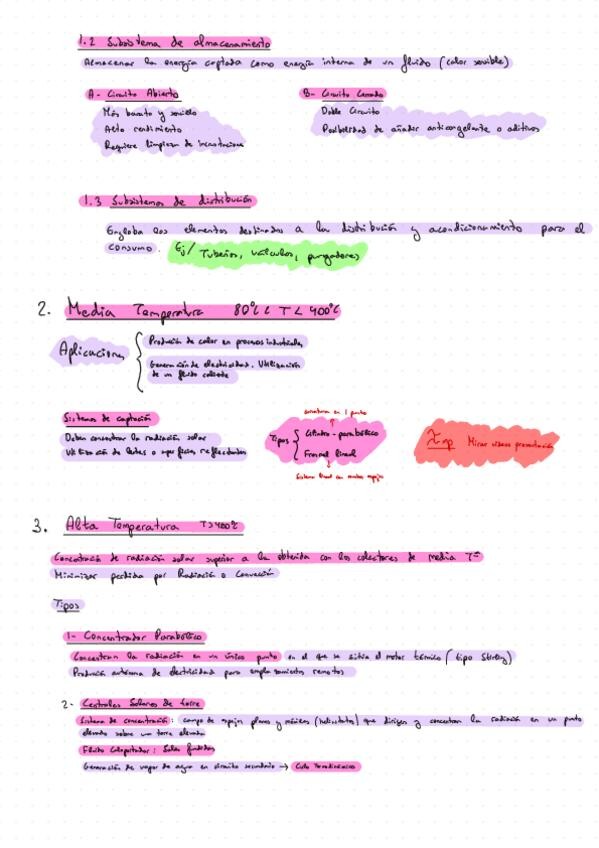 1.2 Subsistema de almacenamiento
Almacenar la energía captada como energía interna de un fluido (calor sensible)
A- Circuito Abierto
Más barato y sencillo
Alto rendimiento
Requiere limpieza de incrustaciones
B- Circuito Cerrado
Doble Circuito
Posibilidad de añadir anticongelante o aditivos
1.3 Subsistemas de distribución
Engloba los elementos destinados a la distribución y acondicionamiento para el
consumo. Ej/ Tuberías, válvulas, purgadores
2. Media Temperatura 80ºC < T < 400ºC
Aplicaciones
Producción de calor en procesos industriales
Generación de electricidad. Utilización
de un fluido caliente
Sistemas de captación
Deben concentrar la radiación solar
Utilización de lentes o superficies reflectantes
Tipos
curvatura en 1 punto
Cilindro-parabólico
Fresnel lineal
Sistema lineal con muchos espejos
Imp Mirar videos presentación
3. Alta Temperatura T>400ºC
Concentración de radiación solar superior a la obtenida con los colectores de media Tª
Minimizar perdida por Radiación o Convección
Tipos
1- Concentrador Parabólico
Concentran la radiación en un único punto en el que se sitúa el motor térmico (tipo Stirling)
Producción autónoma de electricidad para emplazamientos remotos
2- Centrales Solares de torre
Sistema de concentración: campo de espejos planos y móviles (heliostatos) que dirigen y concentran la radiación en un punto
elevado sobre una torre elevada
Fluido Caloportador: Sales fundidas
Generación de vapor de agua en circuito secundario → Ciclo termodinámico